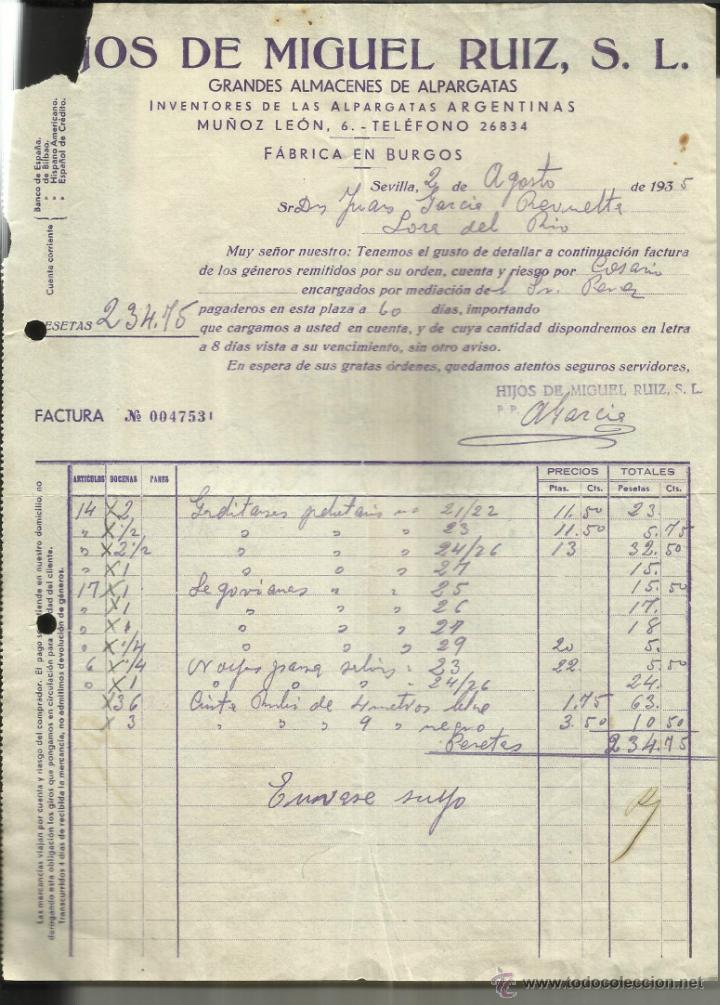 JOS DE MIGUEL RUIZ, S. L.
GRANDES ALMACENES DE ALPARGATAS
INVENTORES DE LAS ALPARGATAS ARGENTINAS
MUÑOZ LEÓN, 6. - TELÉFONO 26834
FÁBRICA EN BURGOS
Cuenta corriente
Banco de España.
» de Bilbao.
» Hispano Americano.
» Español de Crédito.
Sevilla, 2 de Agosto de 1935
Sr. Dn Juan Garcia
Lora del Rio
Muy señor nuestro: Tenemos el gusto de detallar a continuación factura
de los géneros remitidos por su orden, cuenta y riesgo por Cosario
encargados por mediación del Sr. Perez
ESETAS 234.75 pagaderos en esta plaza a 60 días, importando
que cargamos a usted en cuenta, y de cuya cantidad dispondremos en letra
a 8 días vista a su vencimiento, sin otro aviso.
En espera de sus gratas órdenes, quedamos atentos seguros servidores,
HIJOS DE MIGUEL RUIZ, S. L.
P. P.
AGarcia
FACTURA № 0047531
ARTICULOS DOCENAS PARES PRECIOS TOTALES
Ptas. Cts. Pesetas Cts.
14 2 21/22 11.50 23.
» 1/2 » » » 23 11.50 5.75
» 2 1/2 » » » 24/26 13 32.50
» 1 » » » 27 15.
17 1 Segovianas » » 25 15.50
» 1 » » » 26 17.
» 1 » » » 27 18
» 1/4 » » » 29 20 5.
6 1/4 23 22. 5.50
» 1 » » » » 24/26 24.
36 Cinta de 4 metros 1.75 63.
3 » » » 9 » negro 3.50 10.50
Pesetas 234.75
Envase suyo
Las mercancías viajan por cuenta y riesgo del comprador. El pago se entiende en nuestro domicilio, no
derogando esta obligación los giros que pongamos en circulación para dad del cliente.
Transcurridos 4 días de recibida la mercancía, no admitimos devolución de géneros.
www.todocoleccion.net